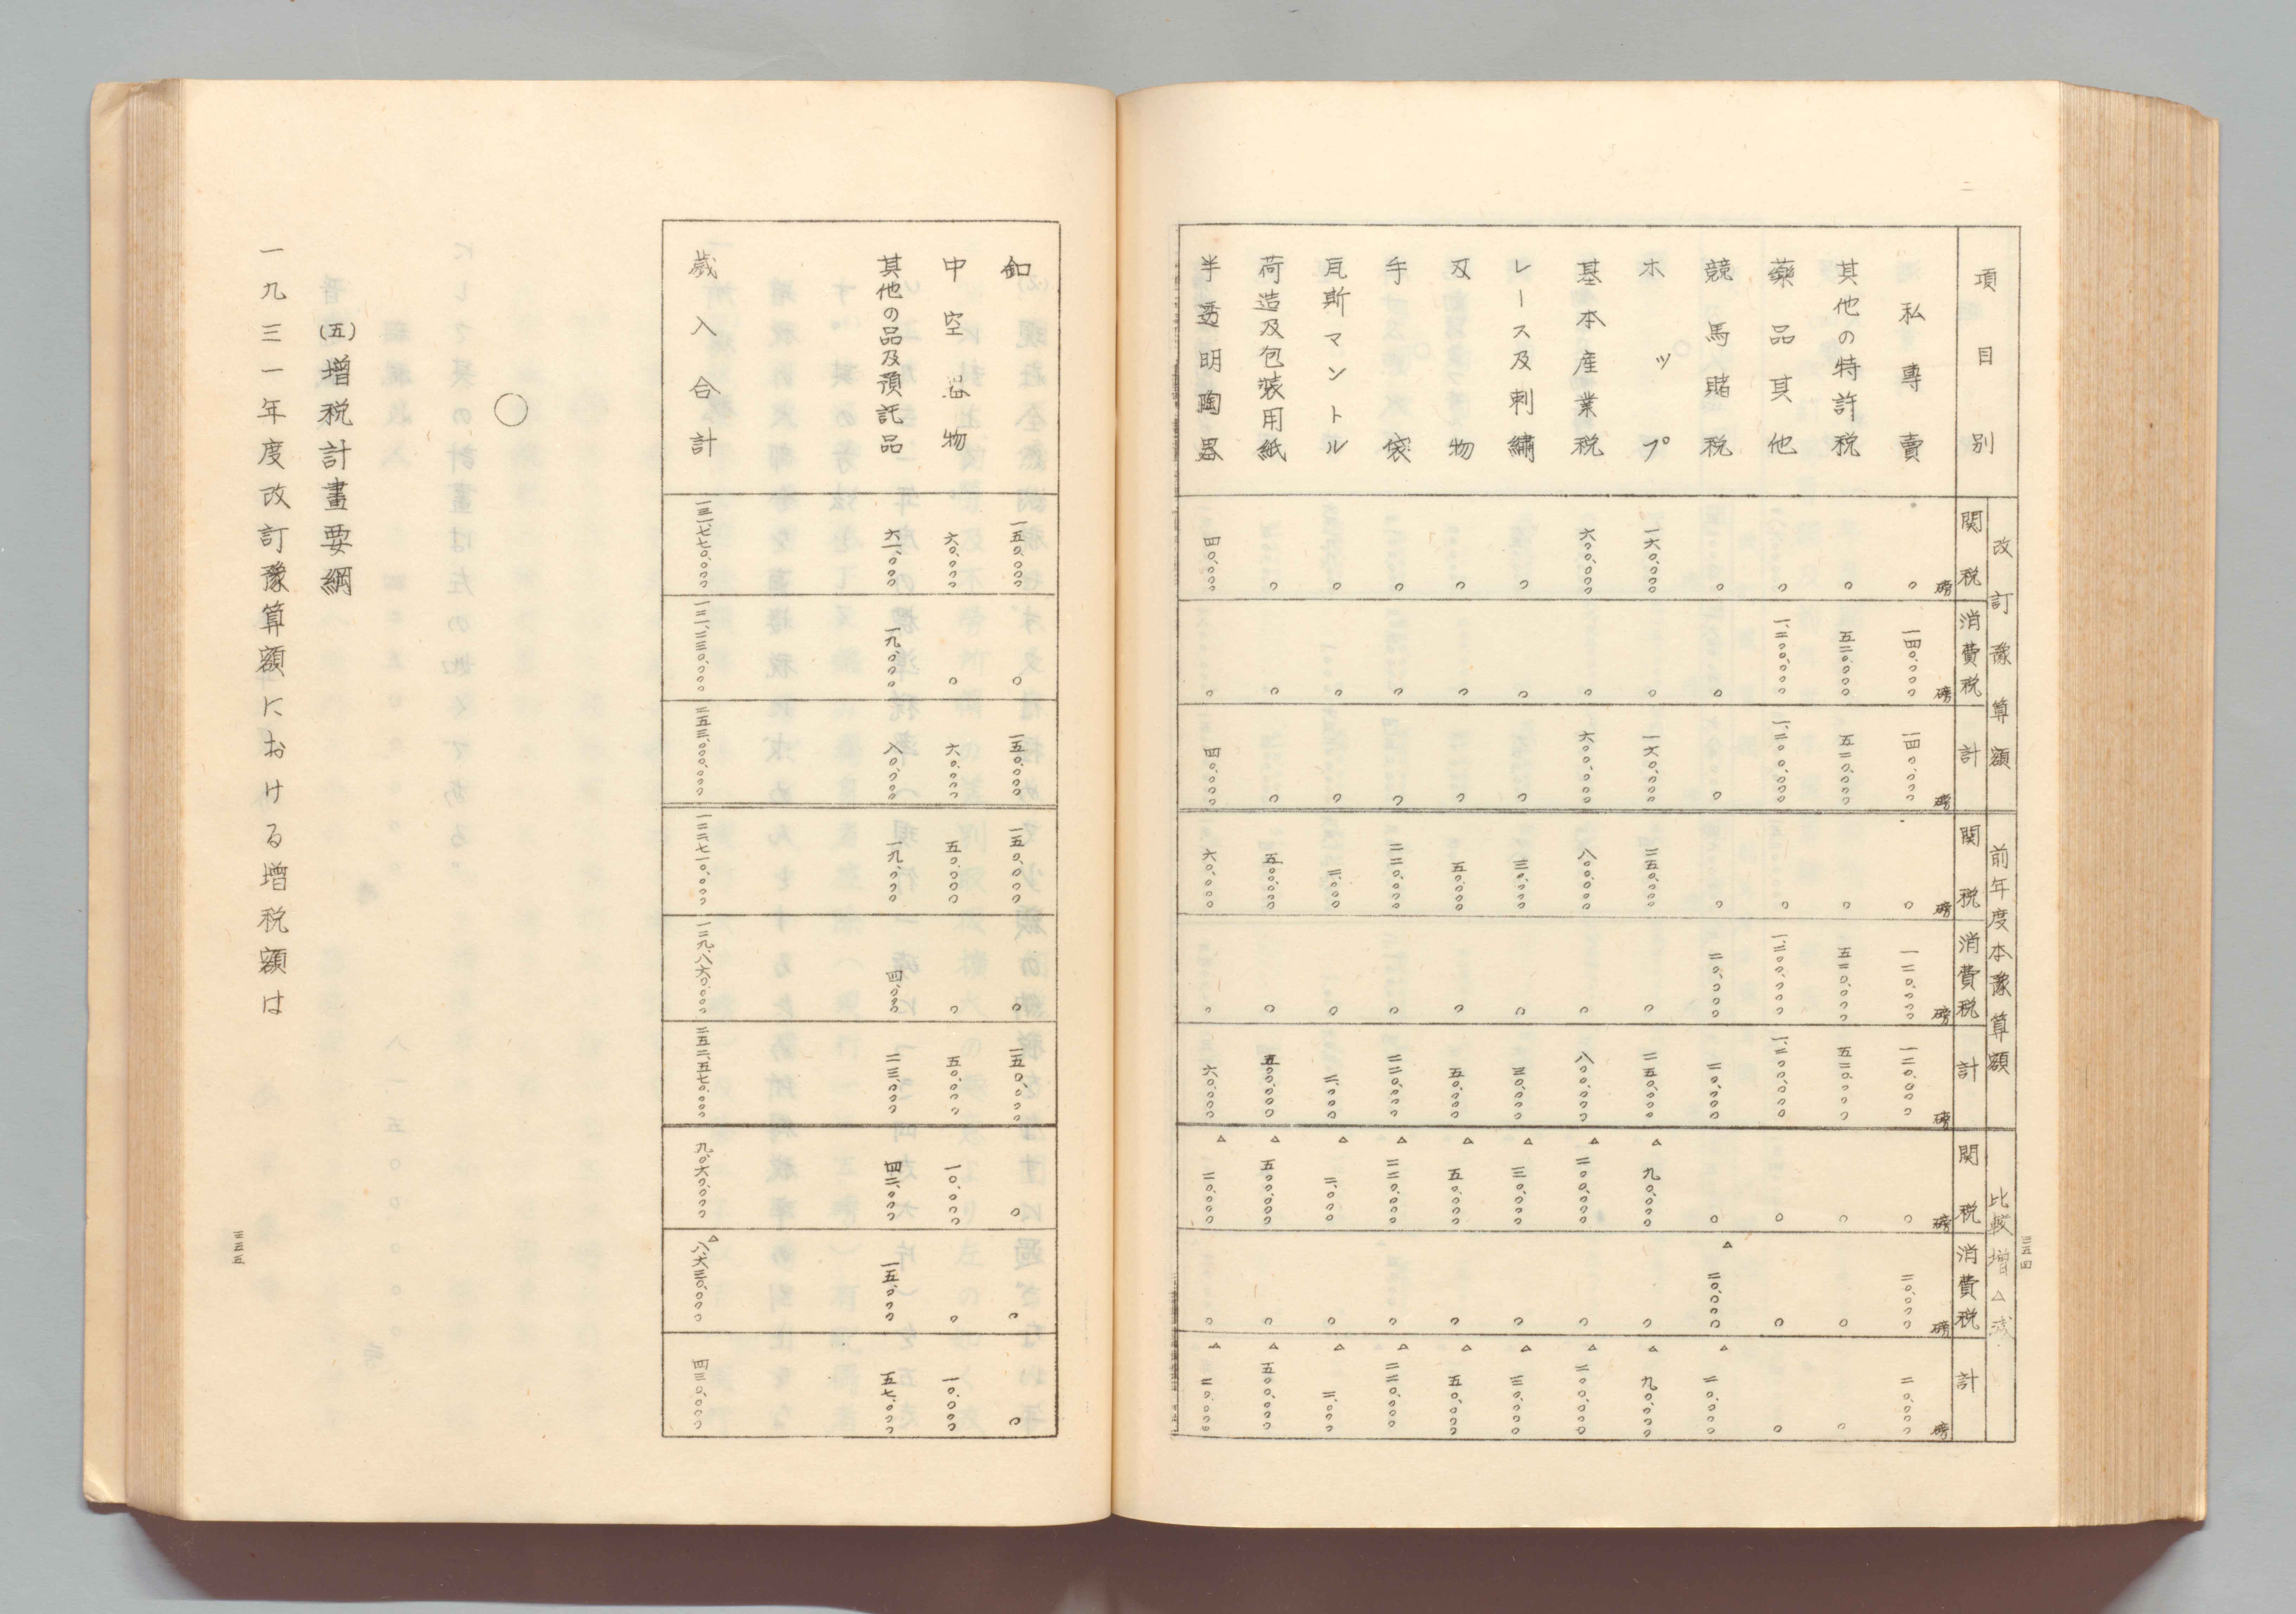 三五四
項目別
改訂豫算額 前年度本豫算額 比較増△減
関税 消費税 計 関税 消費税 計 関税 消費税 計
磅 磅 磅 磅 磅 磅 磅 磅 磅
私專賣 〇 一四〇、〇〇〇 一四〇、〇〇〇 〇 一二〇、〇〇〇 一二〇、〇〇〇 〇 二〇、〇〇〇 二〇、〇〇〇
其他の特許税 〇 五二〇、〇〇〇 五二〇、〇〇〇 〇 五二〇、〇〇〇 五二〇、〇〇〇 〇 〇 〇
藥品其他 〇 一、二〇〇、〇〇〇 一、二〇〇、〇〇〇 〇 一、二〇〇、〇〇〇 一、二〇〇、〇〇〇 〇 〇 〇
競馬賭税 〇 〇 〇 〇 二〇、〇〇〇 二〇、〇〇〇 〇 △二〇、〇〇〇 △二〇、〇〇〇
ホップ 一六〇、〇〇〇 〇 一六〇、〇〇〇 二五〇、〇〇〇 〇 二五〇、〇〇〇 △九〇、〇〇〇 〇 △九〇、〇〇〇
基本産業税 六〇〇、〇〇〇 〇 六〇〇、〇〇〇 八〇〇、〇〇〇 〇 八〇〇、〇〇〇 △二〇〇、〇〇〇 〇 △二〇〇、〇〇〇
レース及刺繡 〇 〇 〇 三〇、〇〇〇 〇 三〇、〇〇〇 △三〇、〇〇〇 〇 △三〇、〇〇〇
刄物 〇 〇 〇 五〇、〇〇〇 〇 五〇、〇〇〇 △五〇、〇〇〇 〇 △五〇、〇〇〇
手袋 〇 〇 〇 二二〇、〇〇〇 〇 二二〇、〇〇〇 △二二〇、〇〇〇 〇 △二二〇、〇〇〇
瓦斯マントル 〇 〇 〇 二、〇〇〇 〇 二、〇〇〇 △二、〇〇〇 〇 △二、〇〇〇
荷造及包装用紙 〇 〇 〇 五〇〇、〇〇〇 〇 五〇〇、〇〇〇 △五〇〇、〇〇〇 〇 △五〇〇、〇〇〇
半透明陶器 四〇、〇〇〇 〇 四〇、〇〇〇 六〇、〇〇〇 〇 六〇、〇〇〇 △二〇、〇〇〇 〇 △二〇、〇〇〇
釦 一五〇、〇〇〇 〇 一五〇、〇〇〇 一五〇、〇〇〇 〇 一五〇、〇〇〇 〇 〇 〇
中空器物 六〇、〇〇〇 〇 六〇、〇〇〇 五〇、〇〇〇 〇 五〇、〇〇〇 一〇、〇〇〇 〇 一〇、〇〇〇
其他の品及預託品 六一、〇〇〇 一九、〇〇〇 八〇、〇〇〇 一九、〇〇〇 四、〇〇〇 二三、〇〇〇 四二、〇〇〇 一五、〇〇〇 五七、〇〇〇
歳入合計 一三一、七七〇、〇〇〇 一二一、二三〇、〇〇〇 二五三、〇〇〇、〇〇〇 一二二、七一〇、〇〇〇 一二九、八六〇、〇〇〇 二五二、五七〇、〇〇〇 九、〇六〇、〇〇〇 △八、六三〇、〇〇〇 四三〇、〇〇〇
○
(五)增税計畫要綱
一九三一年度改訂豫算額における増税額は
三五五